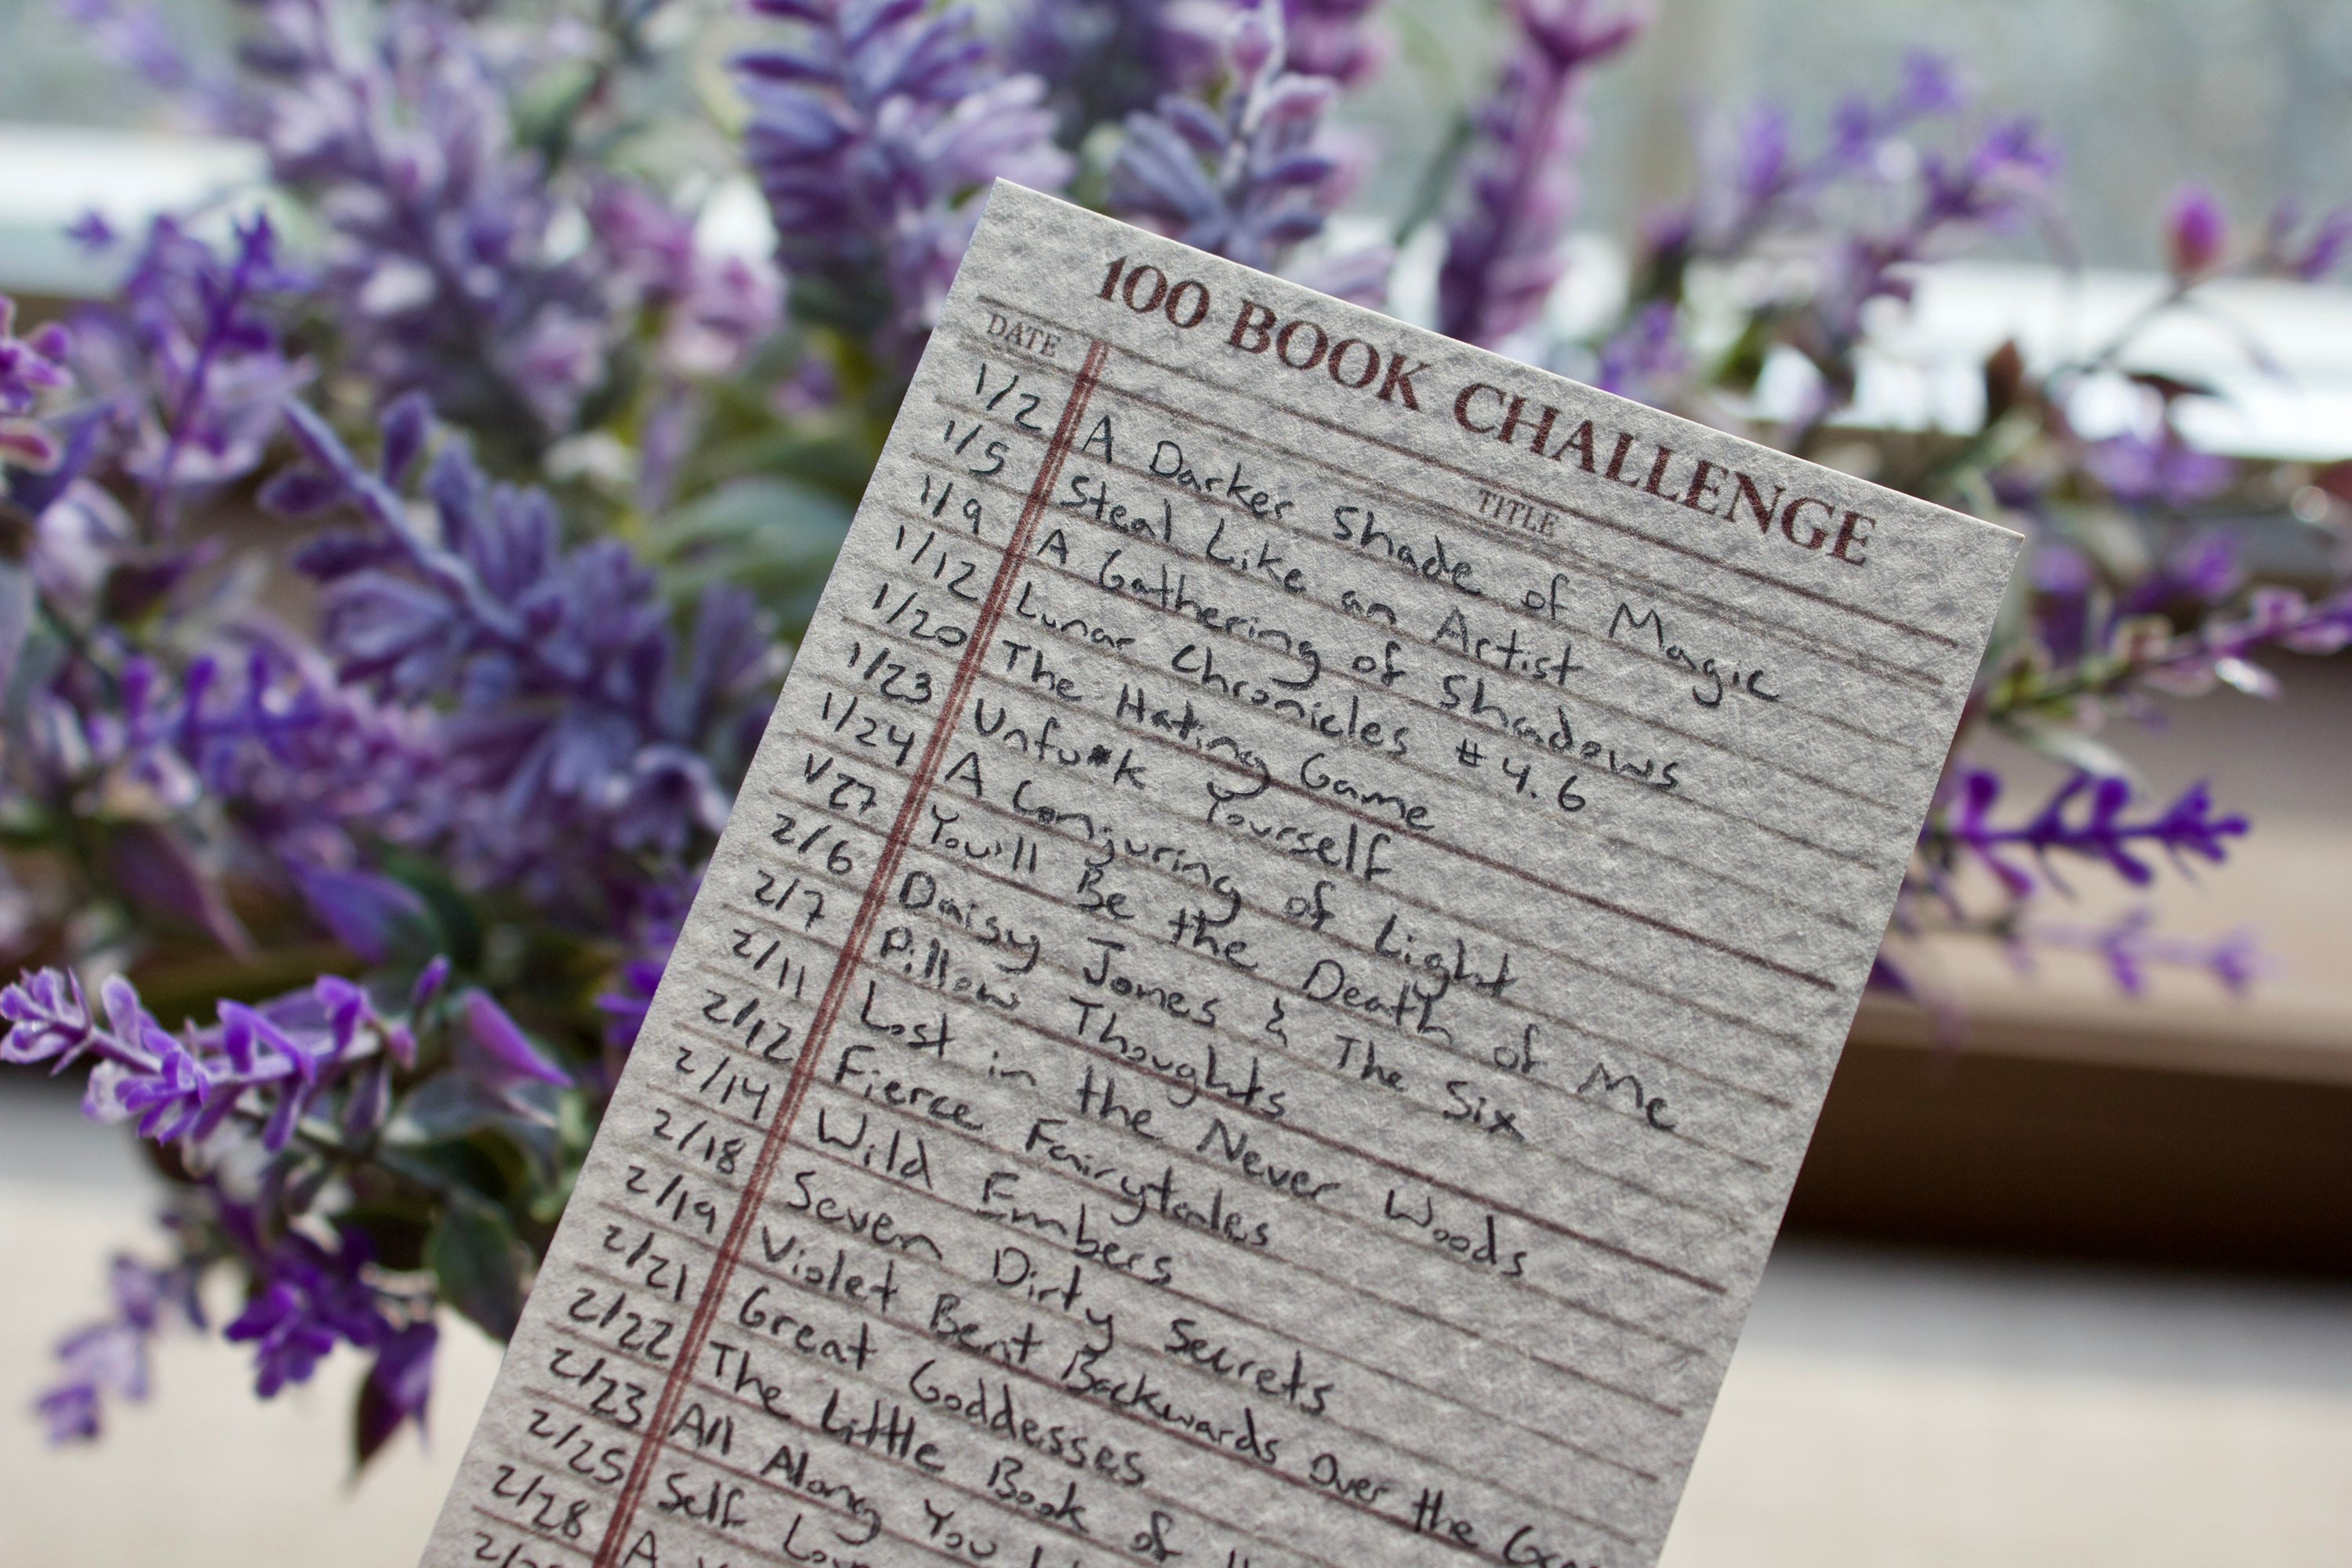 100 BOOK CHALLENGE
DATE TITLE
1/2 A Darker Shade of Magic
1/5 Steal Like an Artist
1/9 A Gathering of Shadows
1/12 Lunar Chronicles #4.6
1/20 The Hating Game
1/23 Unfu*k Yourself
1/24 A Conjuring of Light
1/27 You'll Be the Death of Me
2/6 Daisy Jones & The Six
2/7 Pillow Thoughts
2/11 Lost in the Never Woods
2/12 Fierce Fairytales
2/14 Wild Embers
2/18 Seven Dirty Secrets
2/19 Violet Bent Backwards Over the
2/21 Great Goddesses
2/22 The Little Book of
2/23 All Along You
2/25 Self
2/28 A